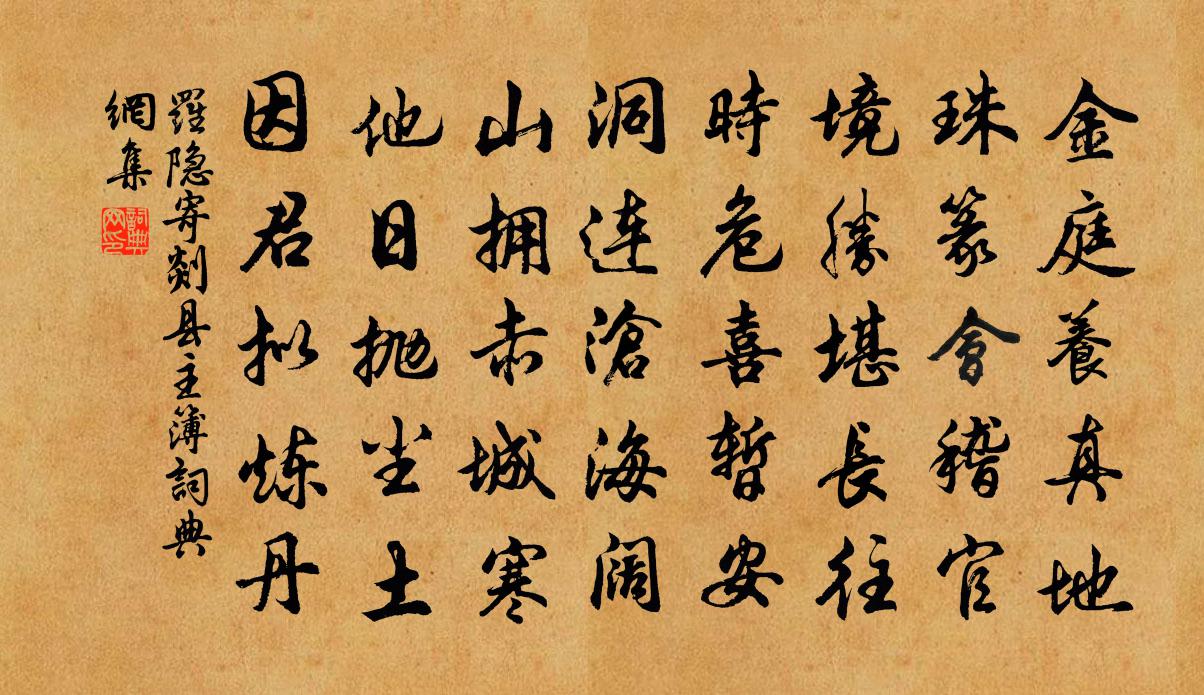 金庭養真地
珠篆會稽官
境勝堪長往
時危喜暫安
洞連滄海阔
山拥赤城寒
他日抛尘土
因君拟炼丹
羅隐寄剡县主簿詞典
網集
詞典
网印